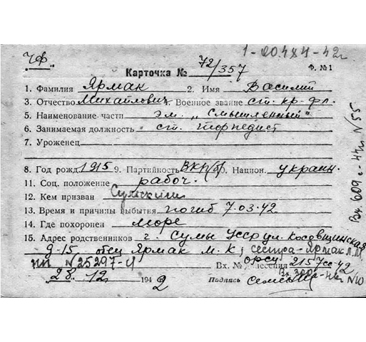 ЧФ. 1-20484-42г
Карточка № 72/357 Ф. №1
1. Фамилия Ярмак 2. Имя Василий
3. Отчество Михайлович 4. Военное звание ст. кр-фл.
5. Наименование части эм. „Смышленный"
6. Занимаемая должность ст. торпедист
7. Уроженец
8. Год рожд. 1915 9. Партийность ВКП(б) 10. Национ. украин.
11. Соц. положение рабоч.
12. Кем призван Сумским
13. Время и причины выбытия погиб 7.03.42
14. Где похоронен море
15. Адрес родственников г. Сумы УССР ул. Косовщинская
9-15 отец Ярмак М. К.; сестра-Ярмак
№ 25297-4 Вх. № 2157сс-42
28. 12 1942 Подпись
Вх 609с-44г N 55
N10